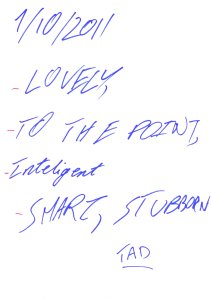 1/10/2011
- LOVELY,
- TO THE POINT,
- Inteligent
- SMART, STUBBORN
TAD